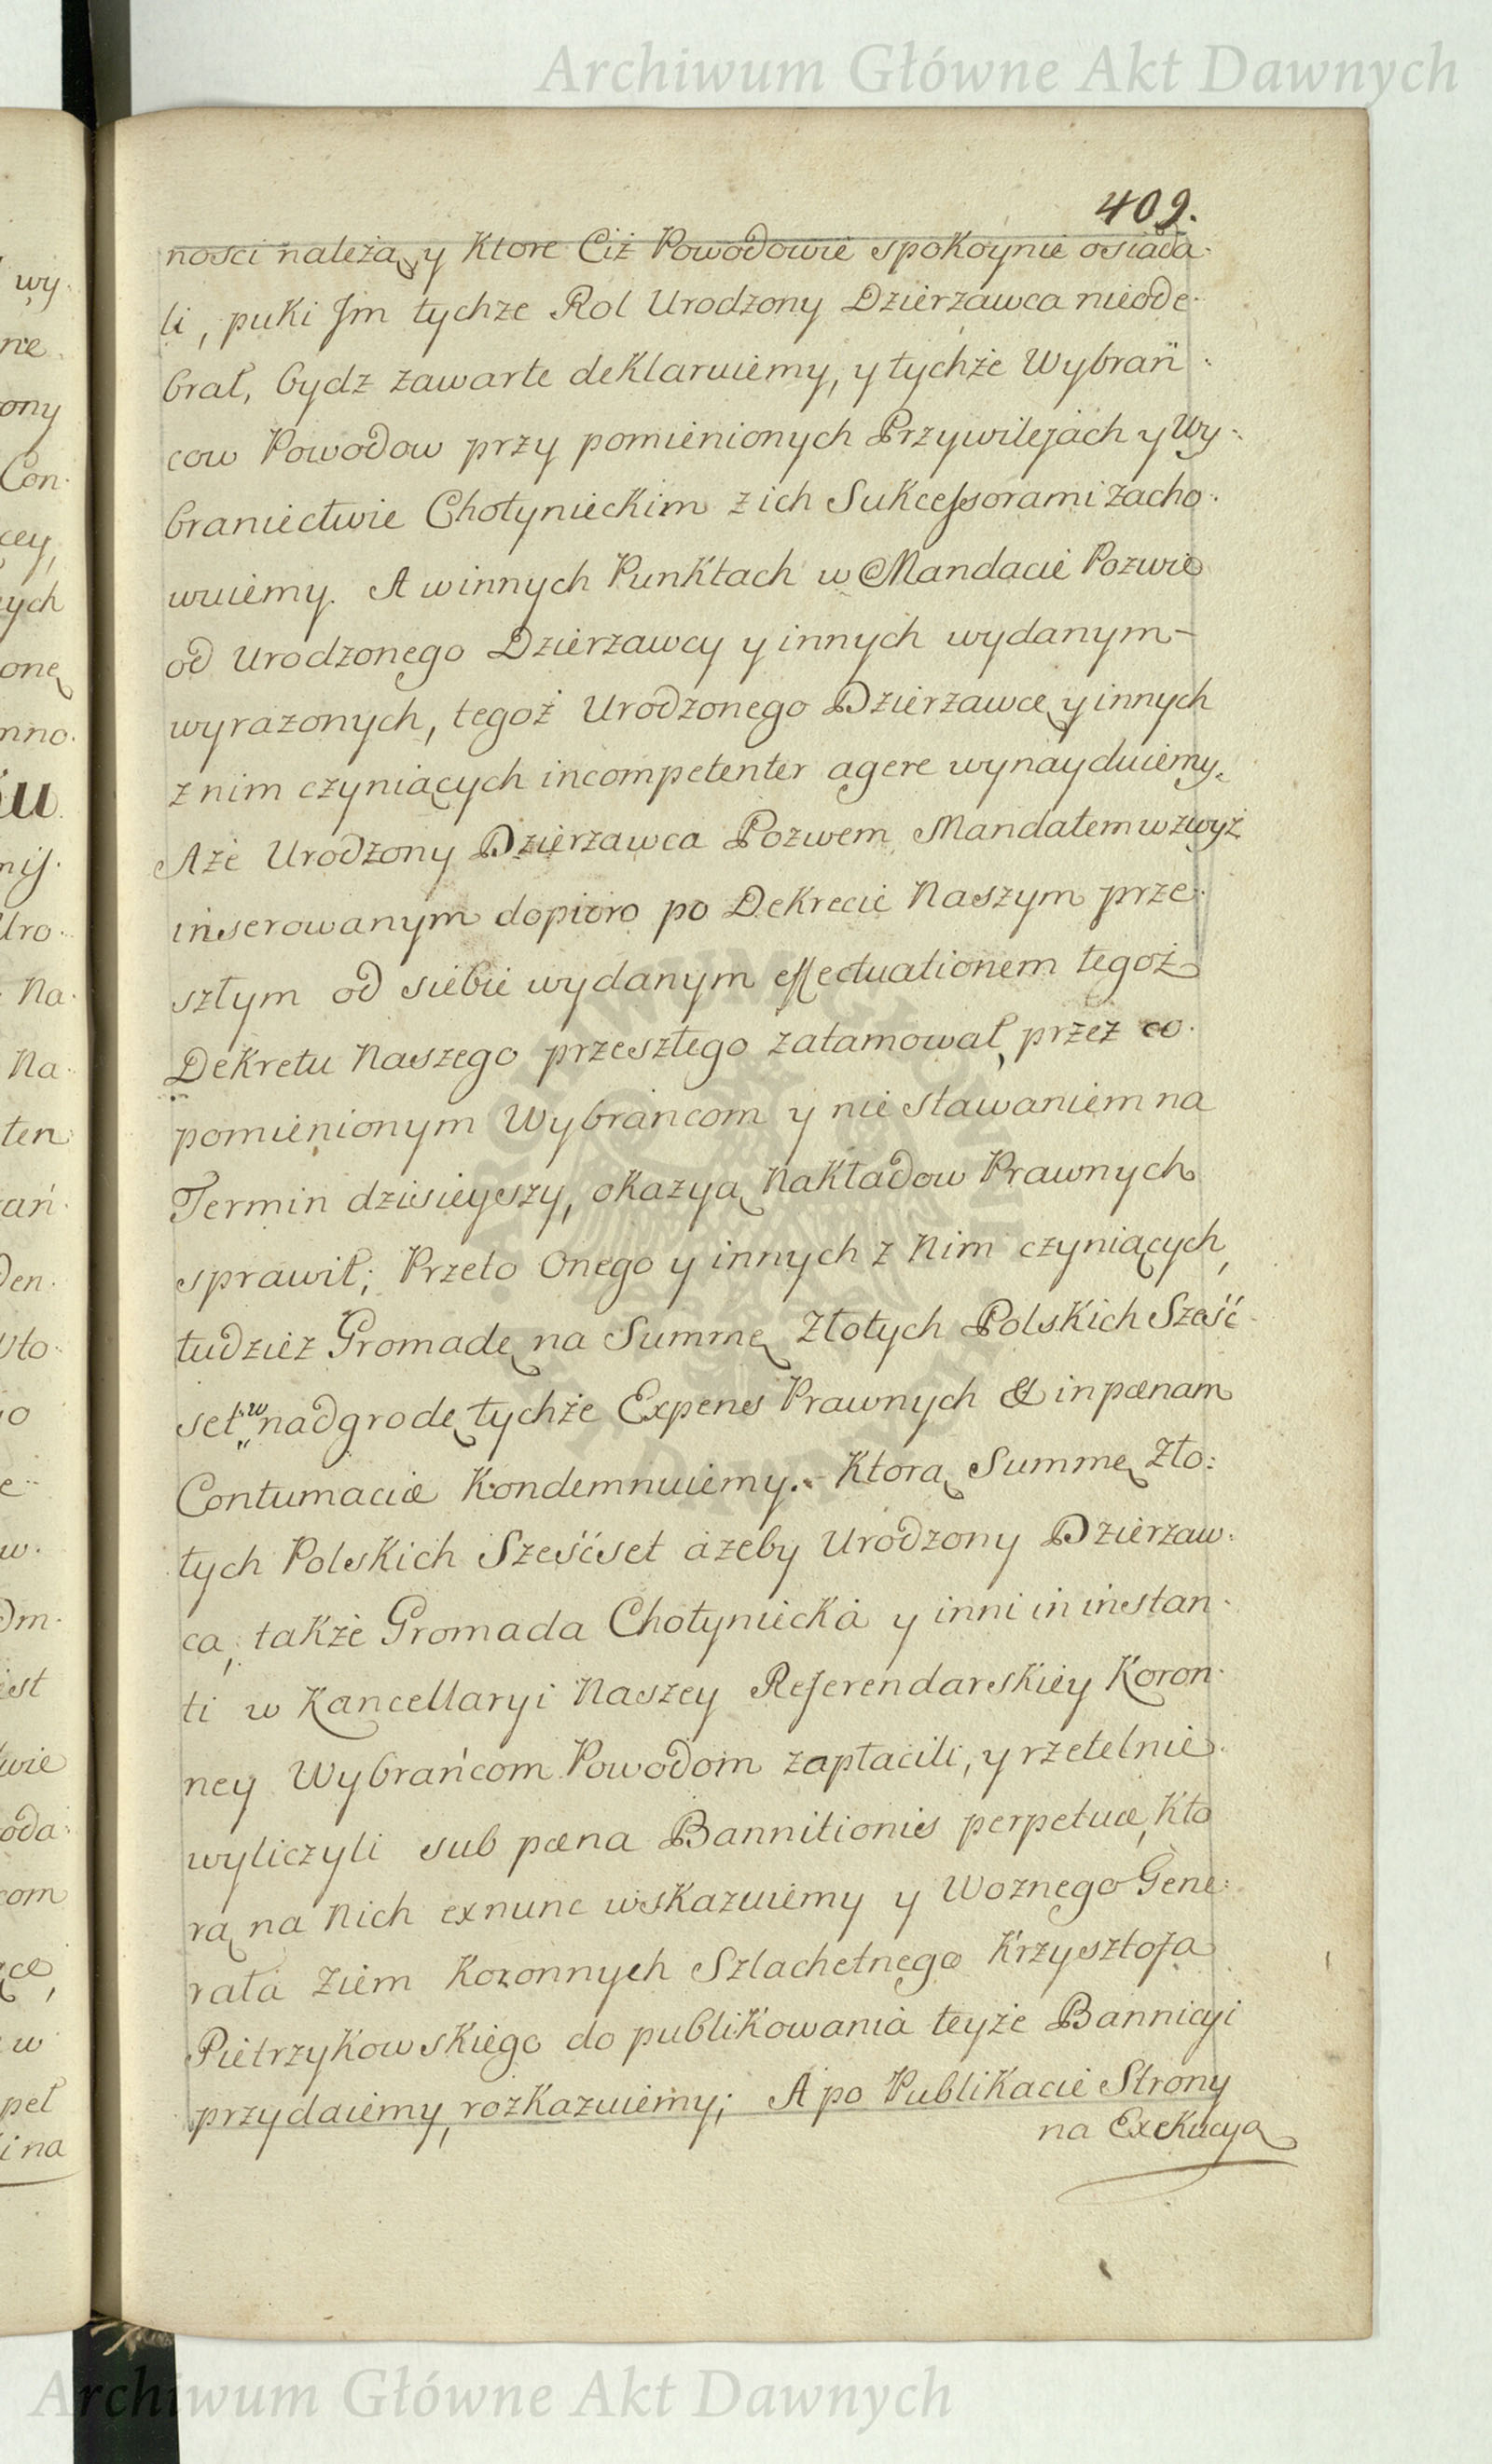 Archiwum Główne Akt Dawnych
409.
ności należą, y Ktore Ciż Powodowie spokoynie osiada-
li, puki Jm tychze Rol Urodzony Dzierzawca nieode-
brał, bydz zawarte deklaruiemy, y tychże Wybrań-
cow Powodow przy pomienionych Przywilejach y Wy-
braniectwie Chotynieckim z ich Sukcessorami zacho-
wuiemy. A w innych Punktach w Mandacie Pozwie
od Urodzonego Dzierzawcy y innych wydanym-
wyrazonych, tegoż Urodzonego Dzierzawcę y innych
z nim czyniących incompetenter agere wynayduiemy.
Aże Urodzony Dzierzawca Pozwem Mandatem wzwyż
inserowanym dopioro po Dekrecie Naszym prze-
szłym od siebie wydanym effectuationem tegoż
Dekretu Naszego przeszłego zatamował, przez co
pomienionym Wybrancom y nie stawaniem na
Termin dzisieyszy, okazyą Nakładow Prawnych
sprawił; Przeto Onego y innych z Nim czyniących,
tudziez Gromadę na Summę Złotych Polskich Sześć-
set w nadgrodę tychże Expens Prawnych & in pœnam
Contumaciæ Kondemnuiemy. Ktorą Summę Zło-
tych Polskich Sześćset ażeby Urodzony Dzierzaw-
ca, także Gromada Chotyniecka y inni in instan-
ti w Kancellaryi Naszey Referendarskiey Koron-
ney Wybrańcom Powodom zapłacili, y rzetelnie
wyliczyli sub pœna Bannitionis perpetuæ, Kto-
rą na Nich exnunc wskazuiemy y Woznego Gene-
rała Ziem Koronnych Szlachetnego Krzysztofa
Pietrzykowskiego do publikowania teyże Bannicyi
przydaiemy, rozkazuiemy; A po Publikacie Strony
na Exekucyą
Archiwum Główne Akt Dawnych